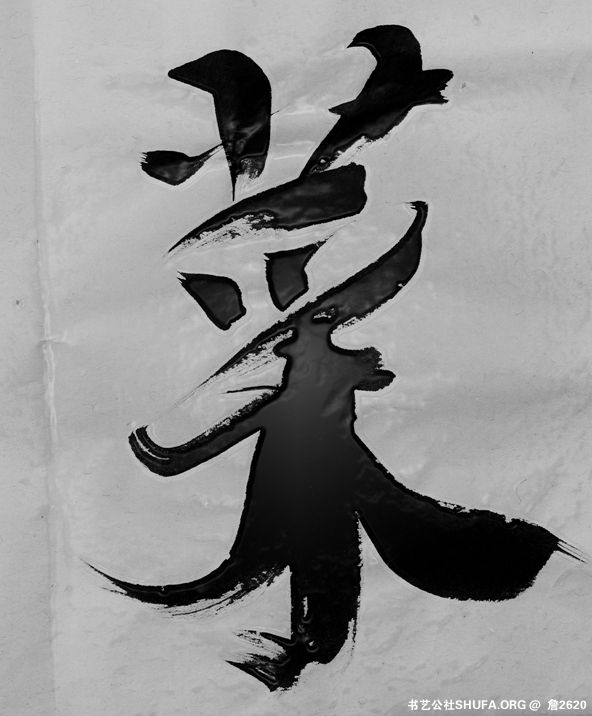 菜
书艺公社SHUFA.ORG @ 詹2620